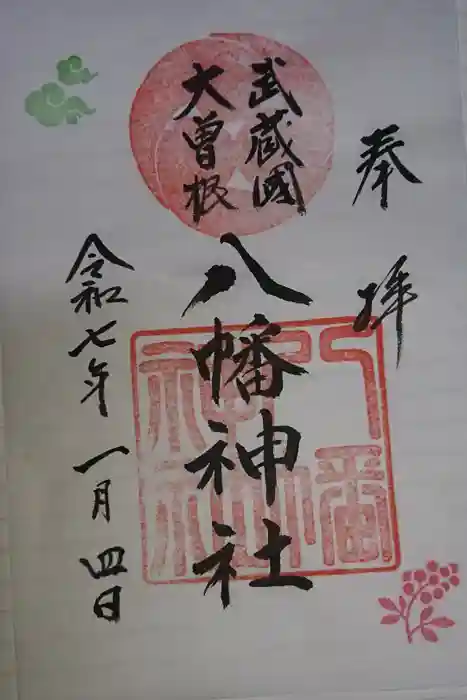 奉拝
武蔵國
大曽根
八幡神社
八幡神社
令和七年一月四日